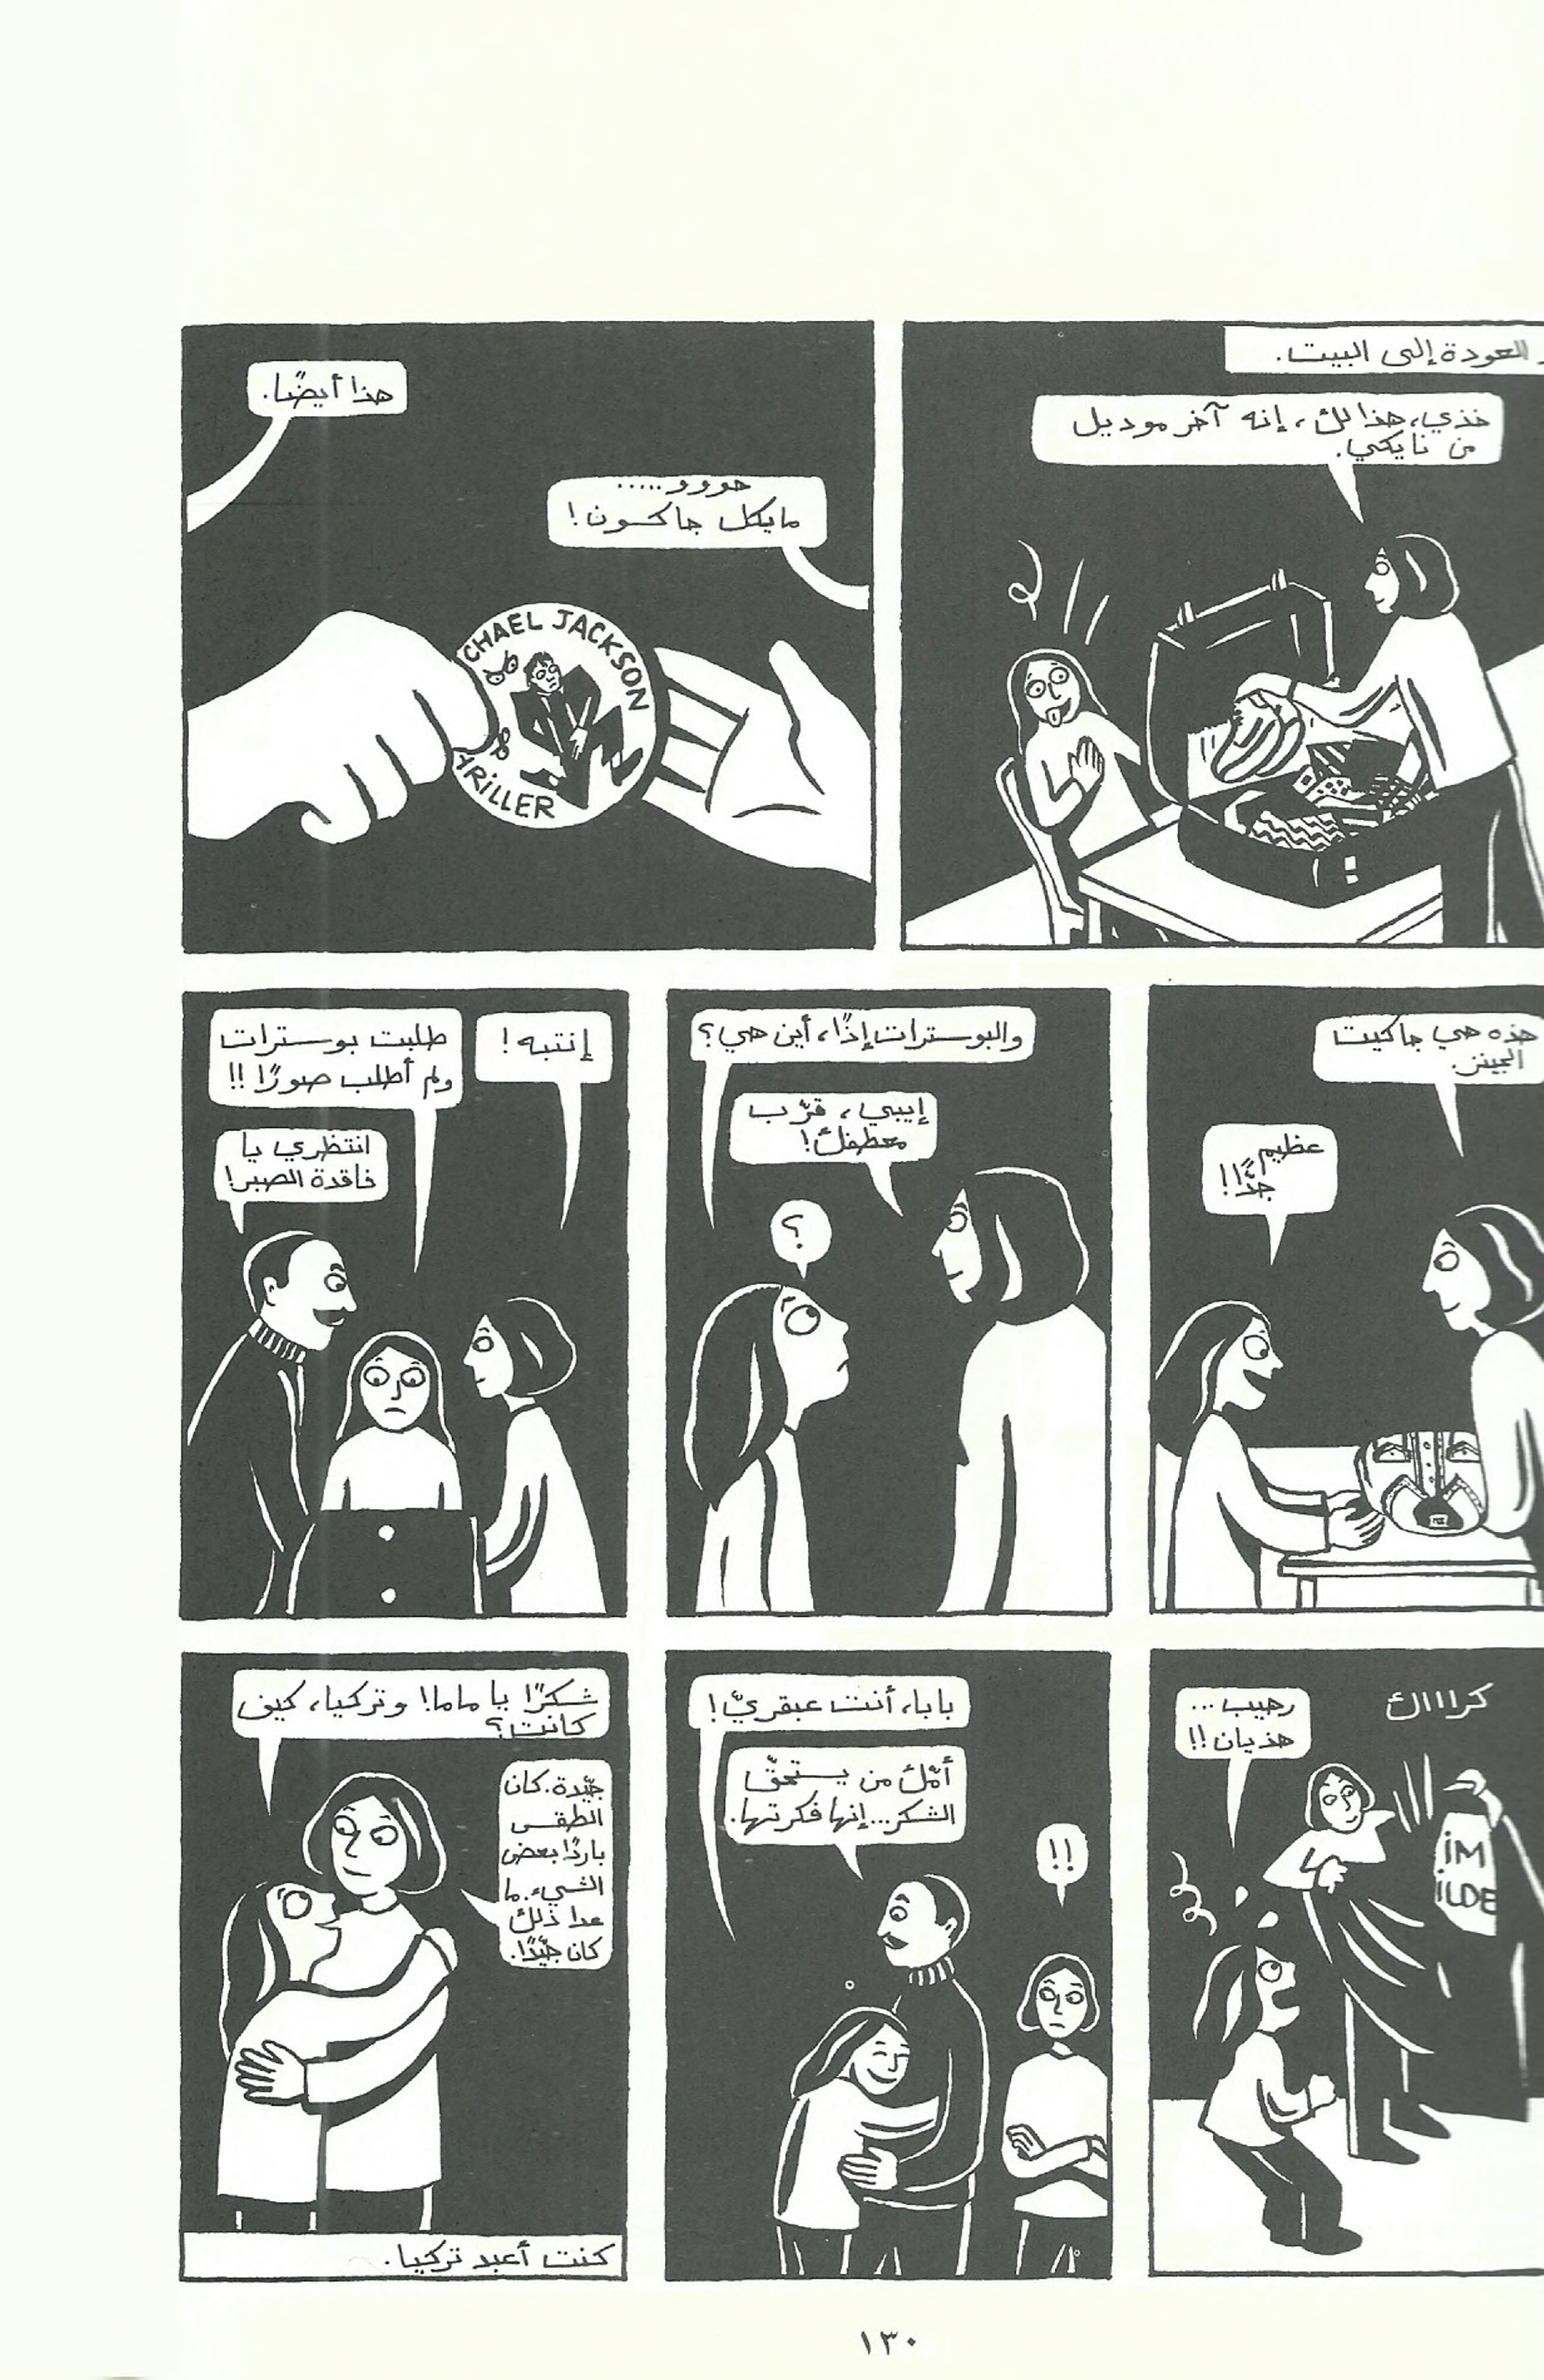 العودة إلى البيت.
خذي، هذا لك، إنه آخر موديل
من نايكي.
هووو.....
مايكل جاكسون!
هذا أيضًا.
CHAEL JACKSON
HRILLER
هذه هي جاكيت
الجينز.
عظيم
جدًّا!!
والبوسترات إذًا، أين هي؟
إيبي، قرّب
معطفك!
؟
إنتبه!
طلبت بوسترات
ولم أطلب صورًا!!
انتظري يا
فاقدة الصبر!
كراااك
رهيب...
هذيان!!
iM
iLDE
بابا، أنت عبقريّ!
أمّك من يستحقّ
الشكر...إنها فكرتها.
!!
شكرًا يا ماما! وتركيا، كيف
كانت؟
جيّدة. كان
الطقس
باردًا بعض
الشيء. ما
عدا ذلك
كان جيّدًا.
كنت أعبد تركيا.
١٣٠